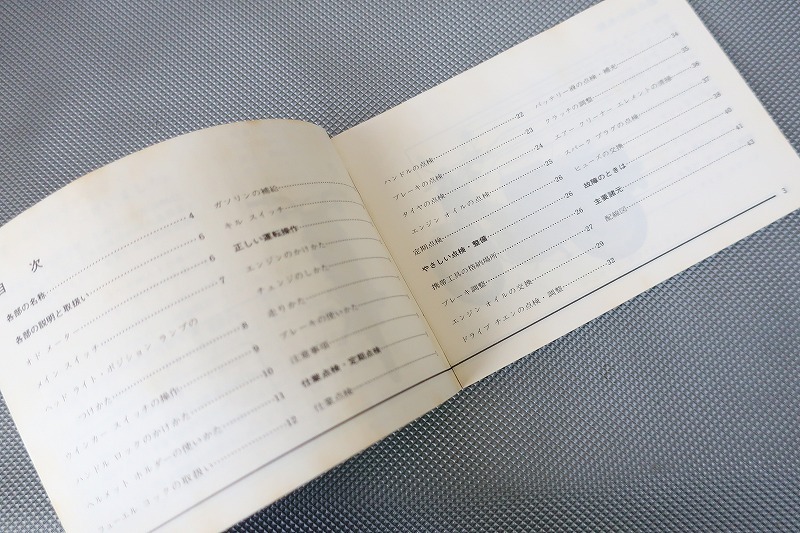 目次
各部の名称 4
各部の説明と取扱い 5
イド メーター 6
メイン スイッチ 7
ヘッド ライト・ポジション ランプの
つけかた 8
ウインカー スイッチの操作 9
ハンドル ロックのかけかた 10
ヘルメット ホルダーの使いかた 11
フューエル コックの取扱い 12
ガソリンの補給
キル スイッチ
正しい運転操作
エンジンのかけかた
チェンジのしかた
走りかた
ブレーキの使いかた
注意事項
仕業点検・定期点検
仕業点検
ハンドルの点検 22
ブレーキの点検 23
タイヤの点検 24
エンジン オイルの点検 25
定期点検 25
やさしい点検・整備 26
携帯工具の格納場所 26
ブレーキ調整 27
エンジン オイルの交換 29
ドライブ チエンの点検・調整 32
バッテリー液の点検・補充 34
クラッチの調整 35
エアー クリーナー エレメントの清掃 36
スパーク プラグの点検 37
ヒューズの交換 38
故障のときは 40
主要諸元 41
配線図 42
3